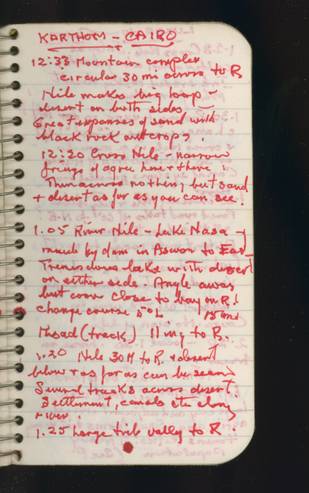 KARTHOM - CAIRO
12:33 Mountain complex
circular 30 mi across to R
Nile makes big loop -
desert on both sides -
Great expanses of sand with
black rock outcrops.
12:20 Cross Nile - narrow
fringe of here + there
nothing but sand
+ desert as far as you can see.
1.05 River Nile - Lake Nasa
made by dam in Aswan to East
Tremendous lake with desert
on either side. Angle away
but come close to bay on R.
change course 5° L 15 mi
Road (track) 11 mi to R.
1.20 Nile 30 M to R. + desert
below + as far as can be seen
Several tracks across desert.
Settlement, canals etc along
river.
1.25 Large trib valley to R.